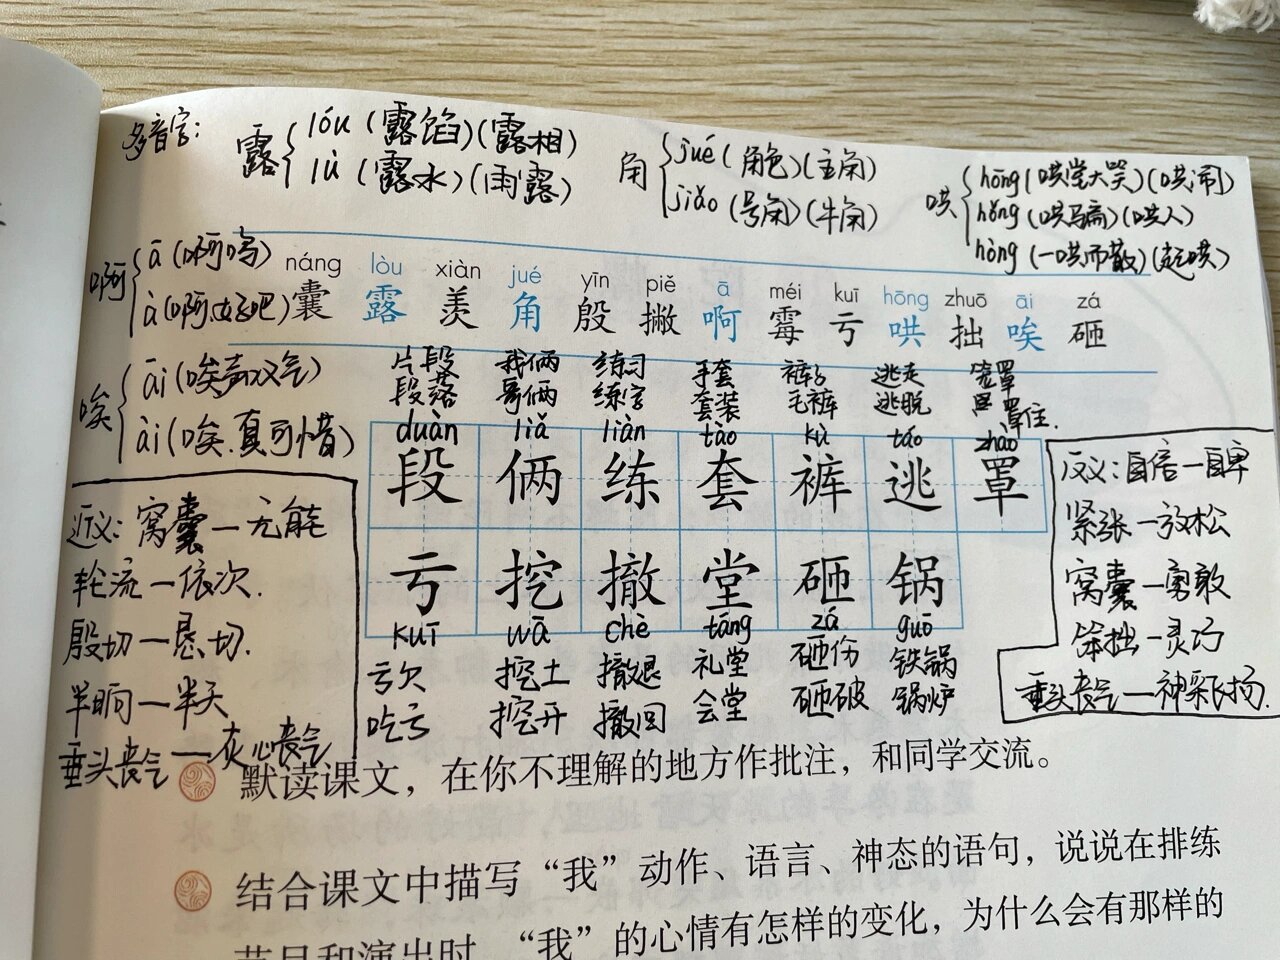 多音字:
露 lóu (露馅)(露相)
lù (露水)(雨露)
角 jué (角色)(主角)
jiǎo (号角)(牛角)
哄 hōng (哄堂大笑)(哄闹)
hǒng (哄骗)(哄人)
hòng (一哄而散)(起哄)
啊 ā (啊呜)
à (啊,好吧)
唉 āi (唉声叹气)
ài (唉.真可惜)
náng lòu xiàn jué yīn piě ā méi kuī hōng zhuō āi zá
囊 露 羡 角 殷 撇 啊 霉 亏 哄 拙 唉 砸
片段 我俩 练习 手套 裤子 逃走 笼罩
段落 哥俩 练字 套装 毛裤 逃脱 罩住.
duàn liǎ liàn tào kù táo zhào
段 俩 练 套 裤 逃 罩
亏 挖 撤 堂 砸 锅
kuī wā chè táng zá guō
亏欠 挖土 撤退 礼堂 砸伤 铁锅
吃亏 挖开 撤回 会堂 砸破 锅炉
近义: 窝囊—无能
轮流—依次.
殷切—恳切.
半晌—半天
垂头丧气—灰心丧气
反义: 自信—自卑
紧张—放松
窝囊—勇敢
笨拙—灵巧
垂头丧气—神采飞扬.
默读课文，在你不理解的地方作批注，和同学交流。
结合课文中描写“我”动作、语言、神态的语句，说说在排练
节目和演出时，“我”的心情有怎样的变化，为什么会有那样的